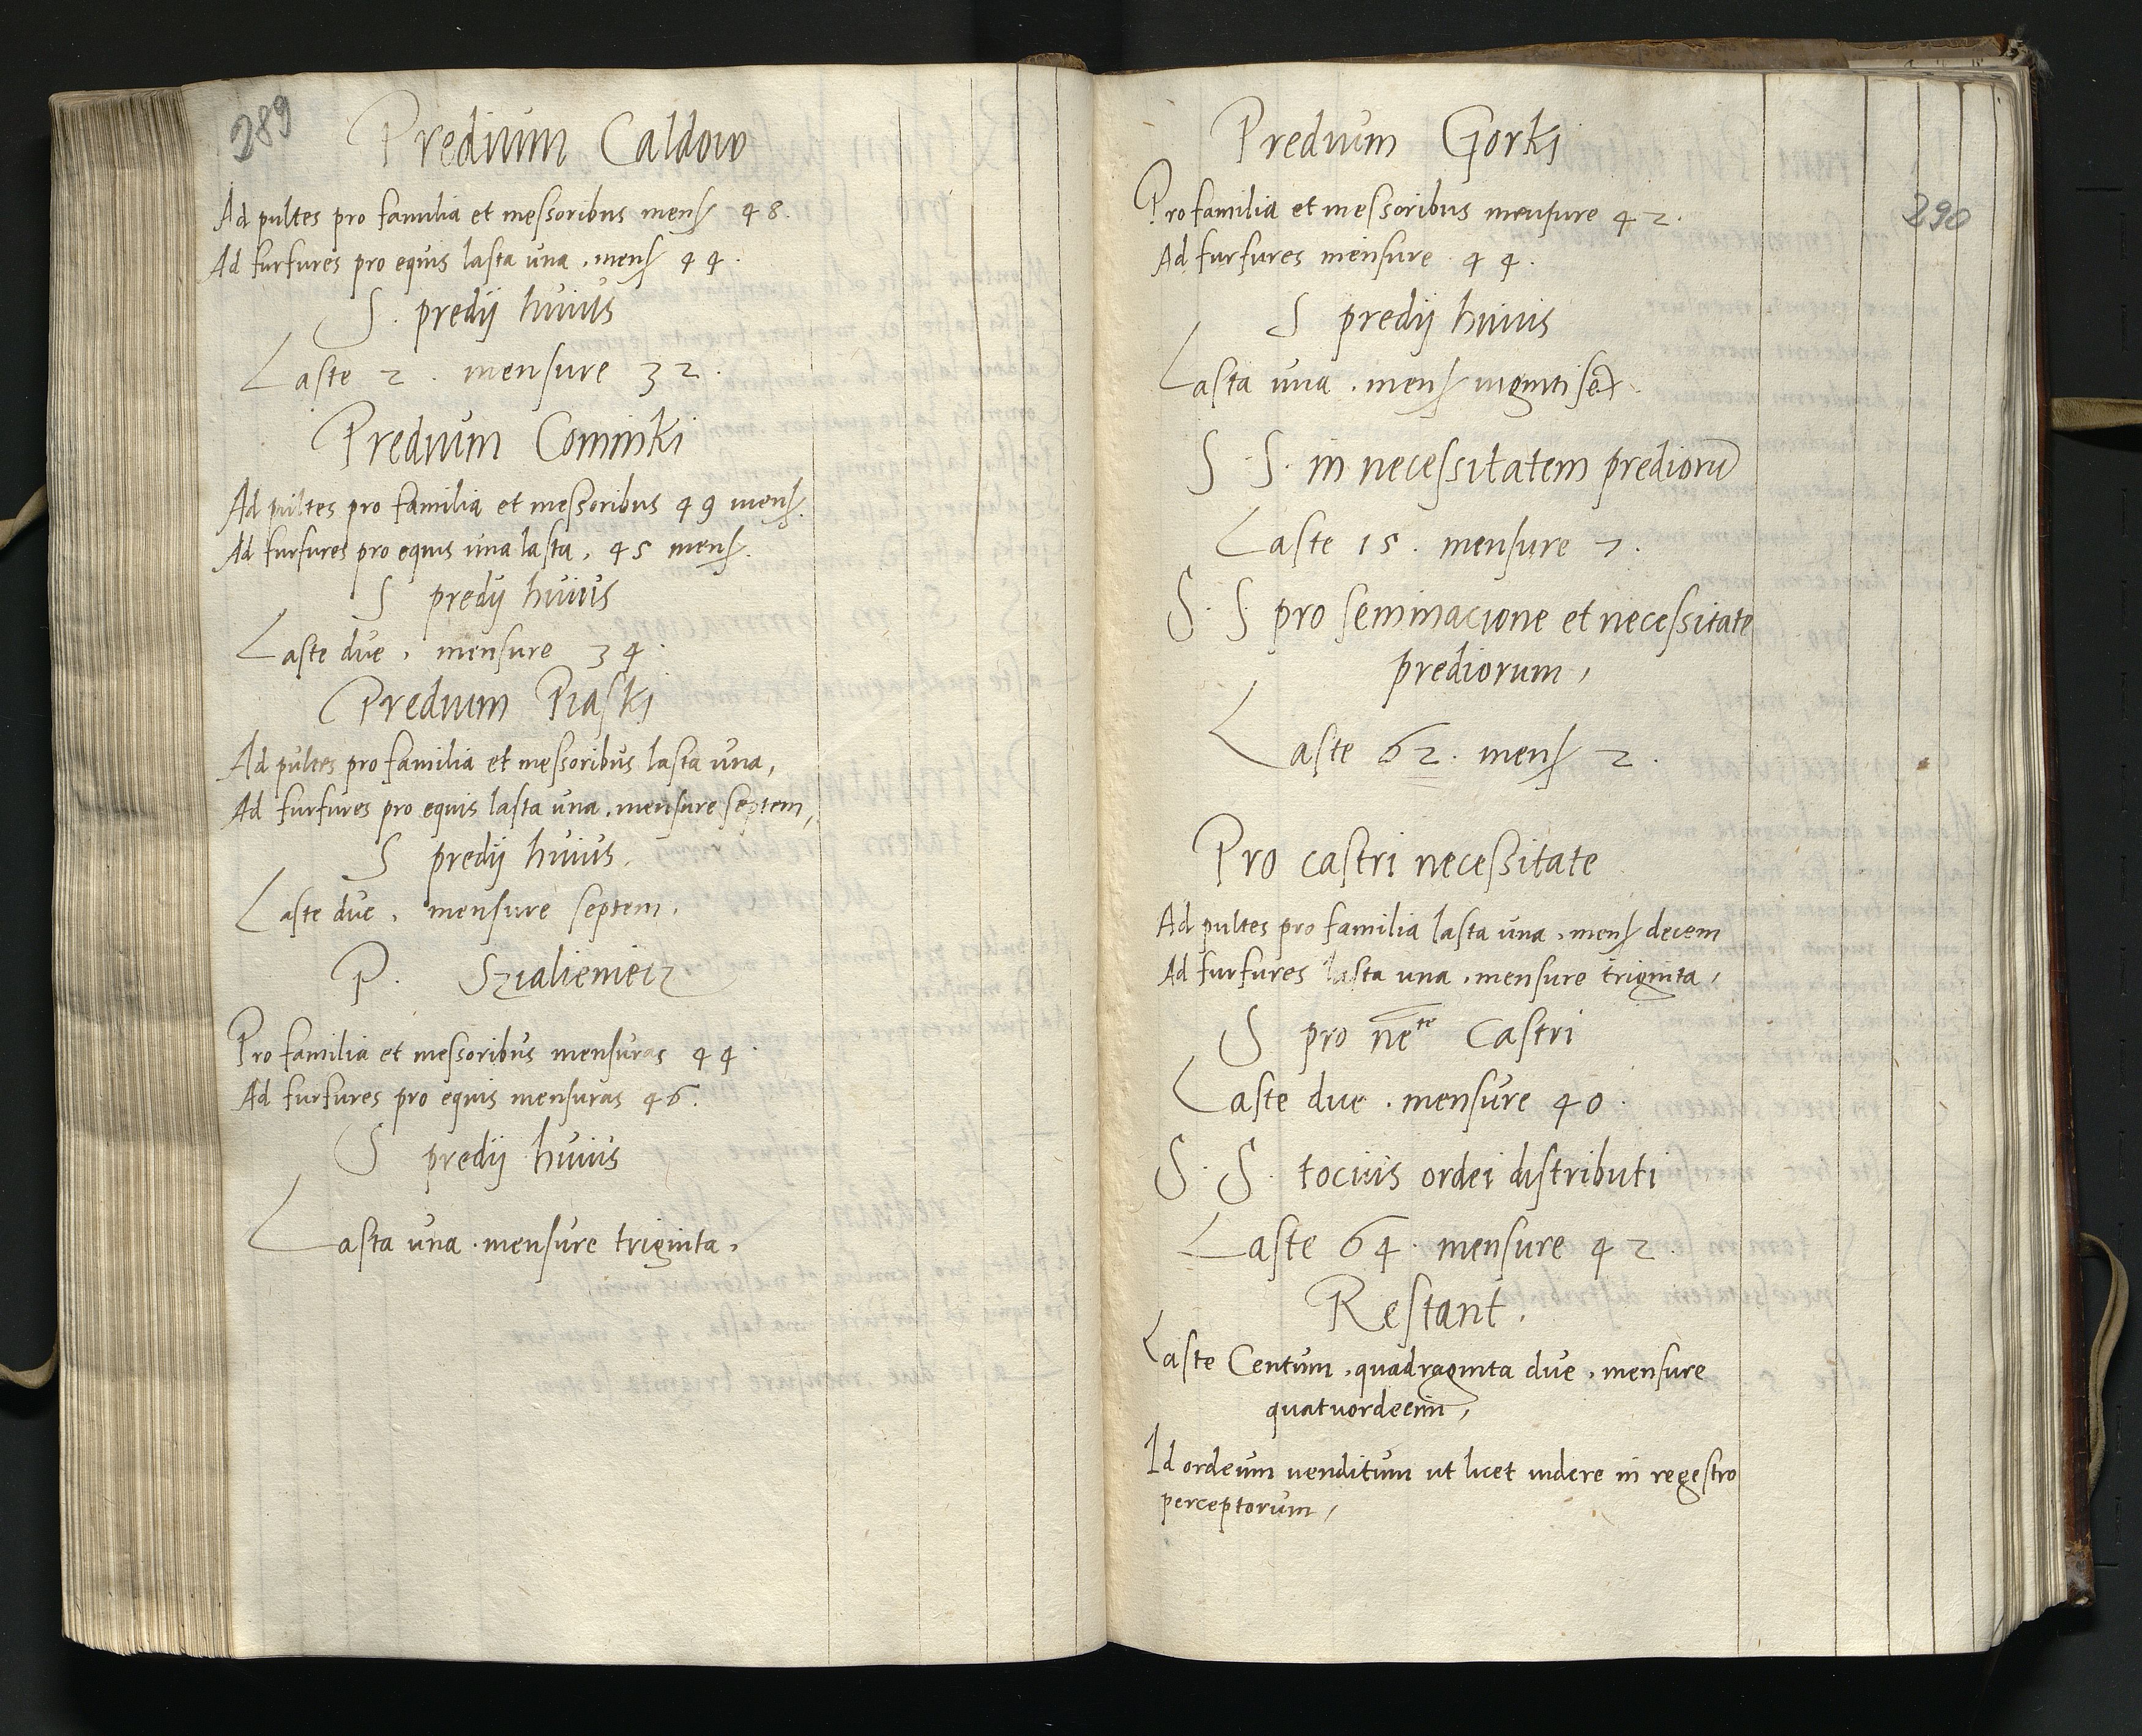 289
Predium Caldow
Ad pultes pro familia et messoribus mens 48.
Ad furfures pro equis lasta una, mens 44.
S. predij huius
Laste 2. mensure 32.
Predium Cominki
Ad pultes pro familia et messoribus 49 mens.
Ad furfures pro equis una lasta, 45 mens.
S predij huius
Laste due, mensure 34.
Predium Piaski
Ad pultes pro familia et messoribus lasta una,
Ad furfures pro equis lasta una, mensure septem,
S predij huius.
Laste due, mensure septem,
P. Szialieniecz
Pro familia et messoribus mensuras 44.
Ad furfures pro equis mensuras 46.
S predij huius
Lasta una. mensure triginta,
290
Predium Gorki
Pro familia et messoribus mensure 42.
Ad furfures mensure 44.
S predij huius
Lasta una, mens viginti sex.
S. S. in necessitatem predioru
Laste 15. mensure 7.
S. S. pro seminacione et necessitate
prediorum,
Laste 62. mens 2.
Pro castri necessitate
Ad pultes pro familia lasta una, mens decem
Ad furfures lasta una, mensure triginta,
S pro nete Castri
Laste due, mensure 40.
S. S. tocius ordei distributi
Laste 64. mensure 42.
Restant.
Laste Centum, quadraginta due, mensure
quatuordecim,
Id ordeum venditum ut licet videre in regestro
perceptorum,